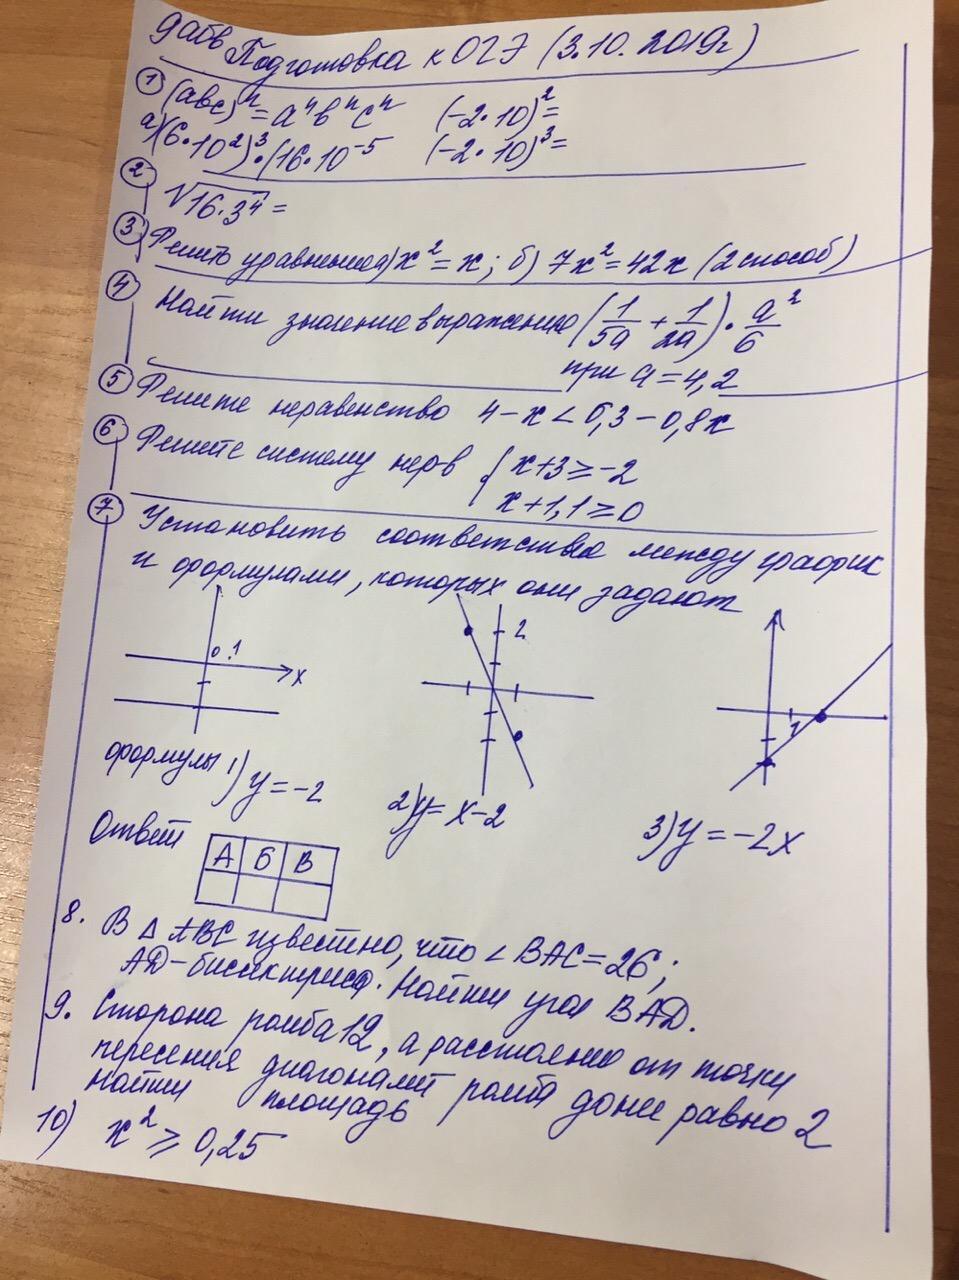 9абв Подготовка к ОГЭ (3.10.2019г)
① (abc)ⁿ = aⁿbⁿcⁿ (-2·10)²=
а)(6·10²)³·(16·10⁻⁵ (-2·10)³=
② √16·3⁴ =
③ Решить уравнения а) x² = x; б) 7x² = 42x (2 способ)
④ Найти значение выражения (1/5a + 1/2a) · a²/6
при a = 4,2
⑤ Решите неравенство 4 - x < 0,3 - 0,8x
⑥ Решите систему нер-в { x+3 ≥ -2
x + 1,1 ≥ 0
⑦ Установить соответствие между график
и формулами, которых они задают
0 1 x
2
1
формулы 1) y = -2 2) y = x - 2 3) y = -2x
Ответ А Б В
8. В △ ABC известно, что ∠BAC = 26;
AD - биссектриса. Найти угол BAD.
9. Сторона ромба 12, а расстояние от точки
пересения диагоналей ромба до нее равно 2
найти площадь
10) x² ≥ 0,25